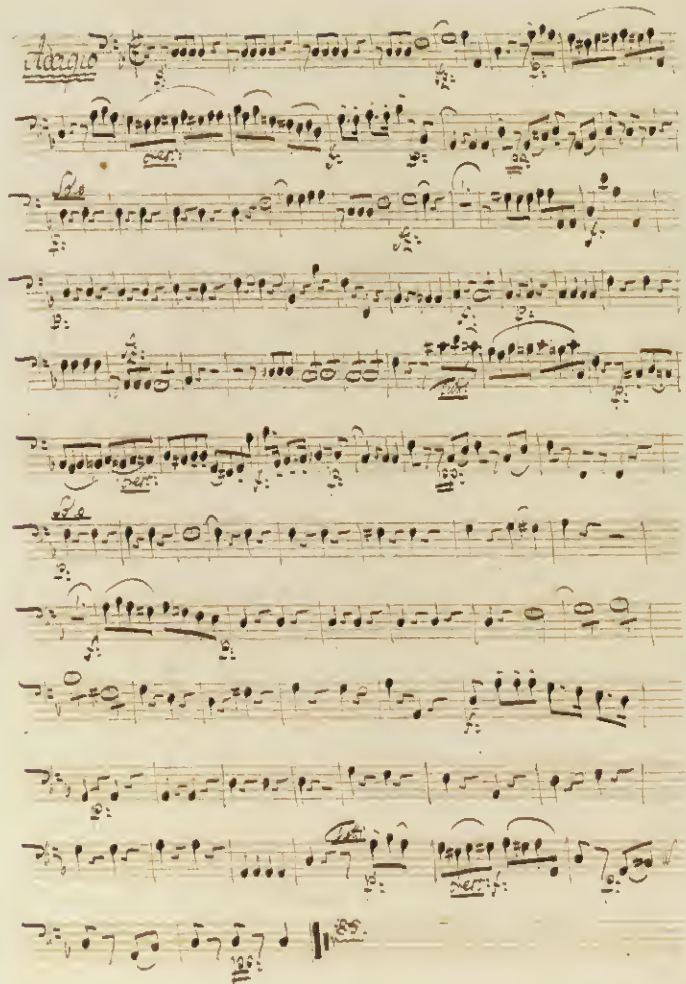 Adagio
p: p:
cresc: f: p: pp:
Solo
p: f: f:
p: f: p:
f: Tutti p:
cresc: f: p: pp:
Solo
p:
f: p:
f:
p:
Tutti p: cresc: f: p:
pp: